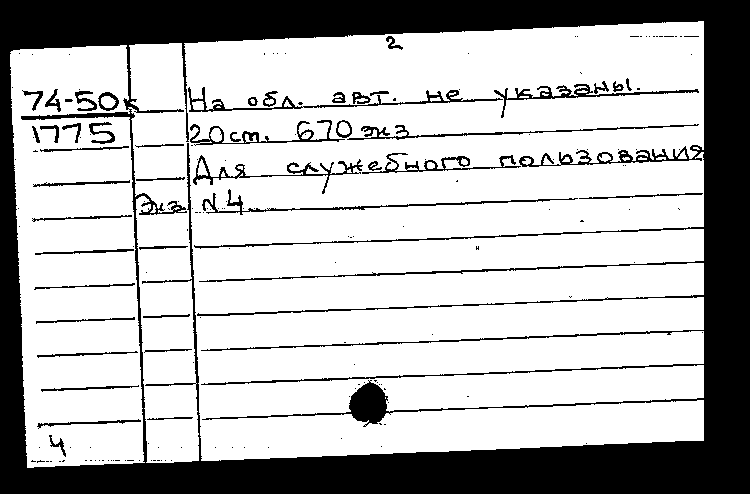 2
74-50к На обл. авт. не указаны.
1775 20 ст. 670 экз
Для служебного пользования
Экз N4
4